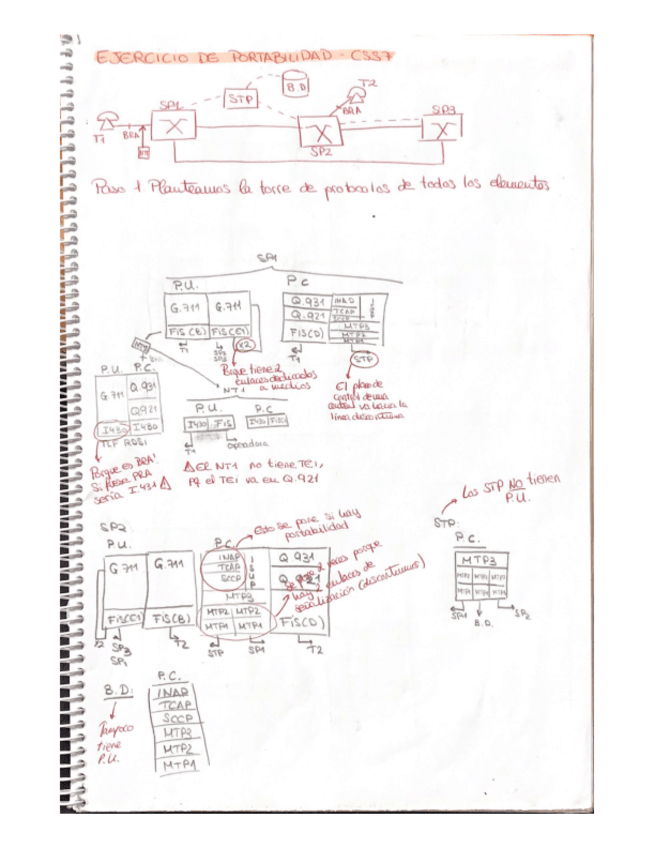 EJERCICIO DE PORTABILIDAD - CSS7
B.D
T2
STP
SP1
BRA
SP3
T1
BRA
SP2
Paso 1 Planteamos la torre de protocolos de todos los elementos
SP1
P.U.
P.C
G.711
G.711
Q.931
INAP
TCAP
SCCP
Q.921
MTP3
MTP2
FIS(B)
FIS(E1)
FIS(D)
x2
T1
SP2
SP3
T1
STP
NT1
P.U.
P.C.
G.711
Q 931
Q921
I430
I430
TLF RDSI
Porque tiene 2
enlaces dedicados
a medios
El plano de
control de una
central va hacia la
línea discontinua
NT1
P.U.
P.C
I430
FIS
I430
T1
operadora
Porque es BRA!
Si fuese PRA
sería I431
El NT1 no tiene TEI,
pq el TEI va en Q.921
Los STP NO tienen
P.U.
Esto se pone si hay
portabilidad
SP2
P.U.
G.711
G.711
FIS(E1)
FIS(B)
x2
SP3
SP1
T2
P.C.
INAP
TCAP
SCCP
ISUP
Q 931
Q.921
MTP3
MTP2
MTP2
MTP1
MTP1
FIS(D)
STP
SP1
T2
se pone 2 veces porque
hay 2 enlaces de
señalización (discontinuos)
STP:
P.C.
MTP3
MTP2
MTP2
MTP2
MTP1
MTP1
MTP1
SP1
B.D.
SP2
B.D.:
Tampoco
tiene
P.U.
P.C.
INAP
TCAP
SCCP
MTP3
MTP2
MTP1